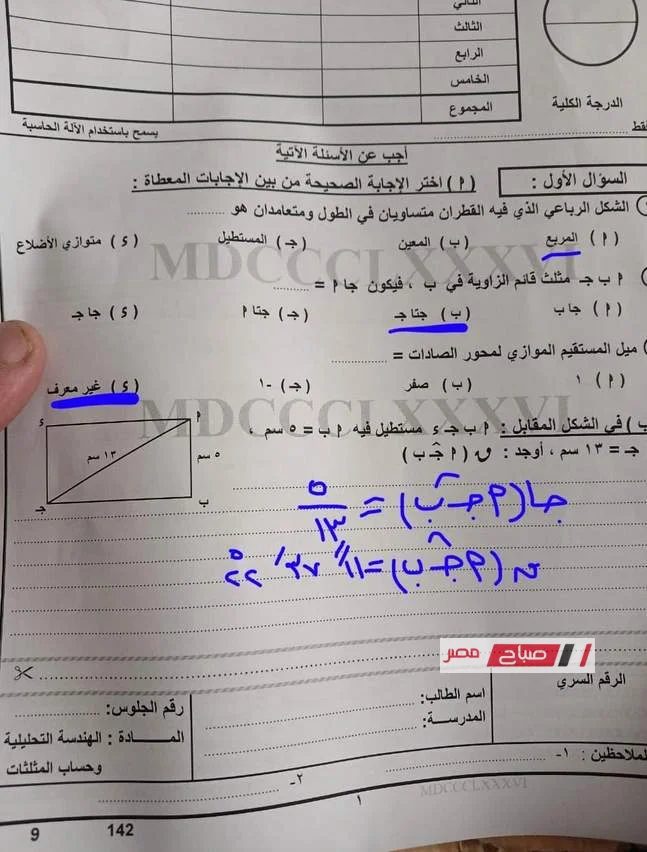 الثاني
الثالث
الرابع
الخامس
المجموع
الدرجة الكلية
فقط
يسمح باستخدام الآلة الحاسبة
أجب عن الأسئلة الآتية
السؤال الأول :
( أ ) اختر الإجابة الصحيحة من بين الإجابات المعطاة :
الشكل الرباعي الذي فيه القطران متساويان في الطول ومتعامدان هو ............
( أ ) المربع (ب) المعين (جـ) المستطيل (ء) متوازي الأضلاع
أ ب جـ مثلث قائم الزاوية في ب ، فيكون جا أ = ..........
( أ ) جا ب (ب) جتا جـ (جـ) جتا أ (ء) جا جـ
ميل المستقيم الموازي لمحور الصادات = ............
( أ ) ١ (ب) صفر (جـ) -١ (ء) غير معرف
MDCCCLXXXVI
MDCCCLXXXVI
ب ) في الشكل المقابل : أ ب جـ ء مستطيل فيه أ ب = ٥ سم ،
جـ = ١٣ سم ، أوجد : ق ( أ جـ ب )
ء
أ
١٣ سم
٥ سم
جـ
ب
جا (أ جـ ب) = ٥/١٣
ق (أ جـ ب) = ١١ً ٣٧َ ٢٢°
صباح مصر
الرقم السري
اسم الطالب:
المدرسة:
رقم الجلوس:
المـــادة : الهندسة التحليلية
وحساب المثلثات
الملاحظين : ١-
٢-
١
MDCCCLXXXVI
9 142